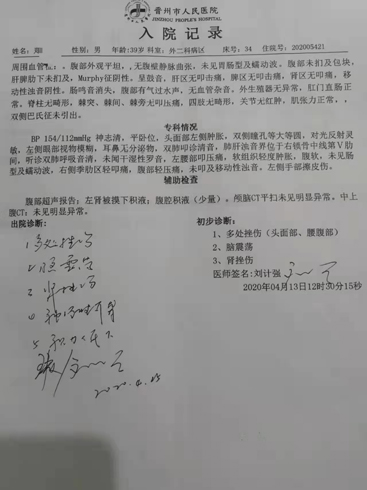 晋州市人民医院
JINZHOU PEOPLE'S HOSPITAL
入院记录
姓名：郑 性别：男 年龄:39岁 科室：外二科病区 床号：34 住院号：202005421
周围血管。腹部外观平坦，无腹壁静脉曲张，未见胃肠型及蠕动波，腹部未扪及包块，
肝脾肋下未扪及，Murphy征阴性，呈鼓音，肝区无叩击痛，脾区无叩击痛，肾区无叩痛，移
动性浊音阴性，肠鸣音消失，腹部有气过水声，无血管杂音。外生殖器无异常，肛门直肠正
常。脊柱无畸形，棘突、棘间、棘旁无叩压痛，四肢无畸形，关节无红肿，肌张力正常，
双侧巴氏征未引出。
专科情况
BP 154/112mmHg 神志清，平卧位，头面部左侧肿胀，双侧瞳孔等大等圆，对光反射灵
敏，左侧眼部视物模糊，耳鼻无分泌物，双肺叩诊清音，肺肝浊音界位于右锁骨中线第Ⅴ肋
间，听诊双肺呼吸音清，未闻干湿性罗音，左腰部叩压痛，软组织轻度肿胀，腹软，未见肠
型及蠕动波，右侧季肋区轻叩痛，腹部轻压痛，未叩及移动性浊音。左侧手部擦皮伤。
辅助检查
腹部超声报告：左肾被摸下积液；腹腔积液（少量）。颅脑CT平扫未见明显异常。中上
腹CT：未见明显异常。
出院诊断：
初步诊断：
1、多处挫伤（头面部、腰腹部）
2、脑震荡
3、肾挫伤
医师签名:刘计强
2020年04月13日12时30分15秒
1、多处挫伤
2、脑震荡
3、肾挫伤